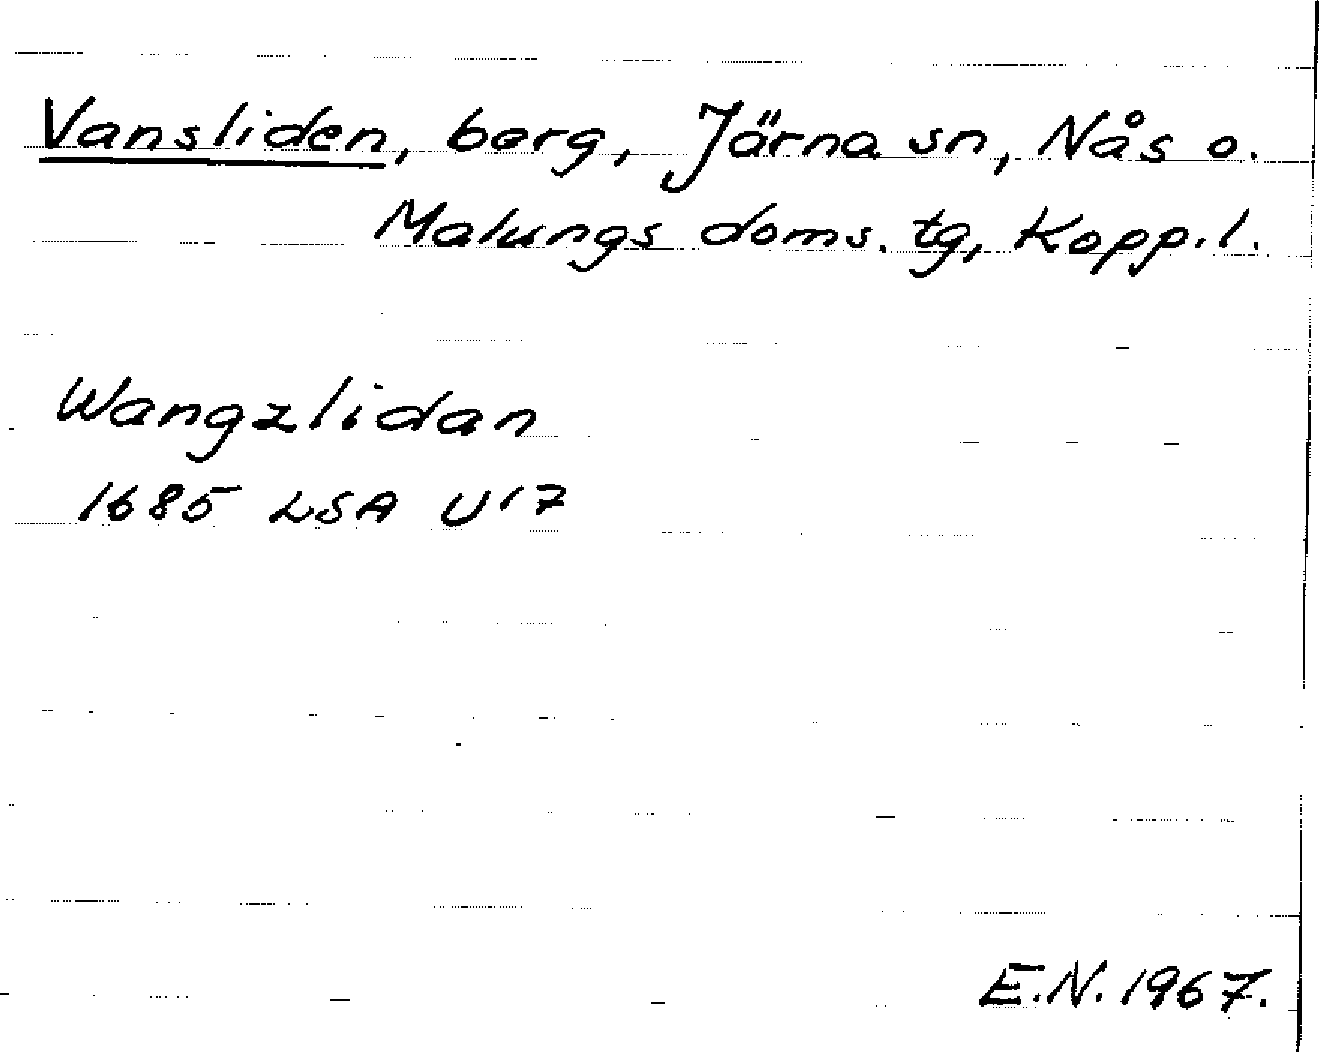 Vansliden, berg, Järna sn, Nås o.
Malungs doms. tg, Kopp. l.
Wangzlidan
1685 LSA U17
E.N. 1967.